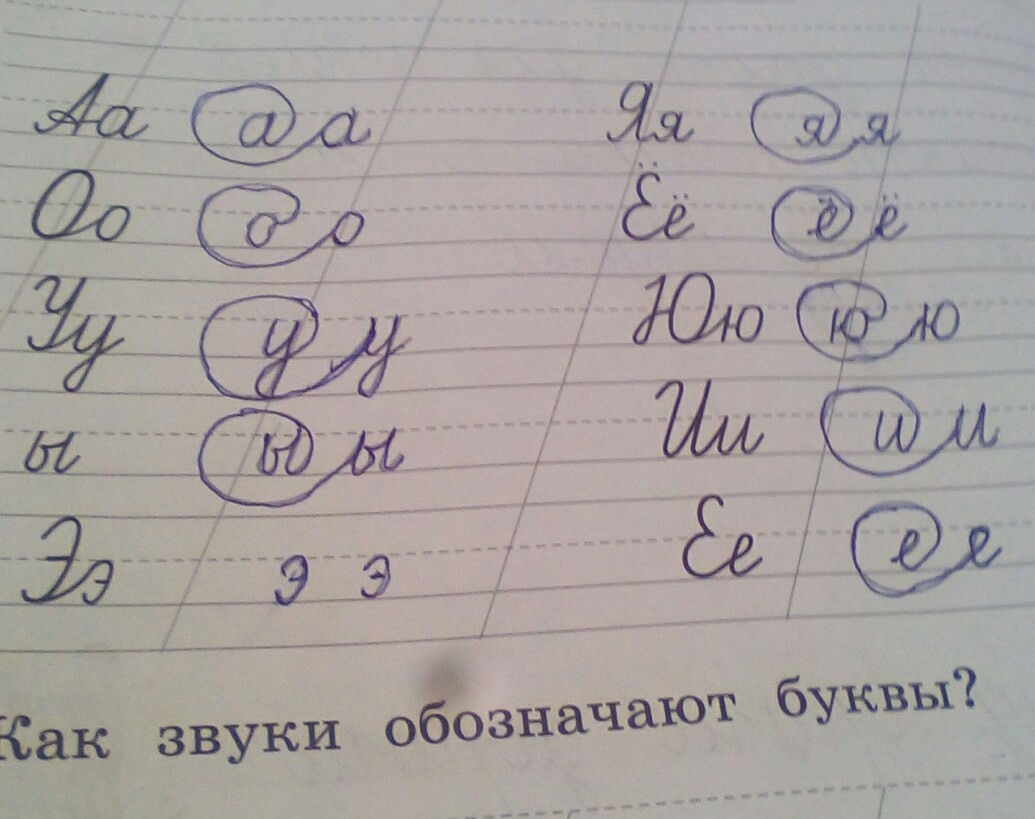 Аа а а Яя я я
Оо о о Ёё ё ё
Уу у у Юю ю ю
ы ы ы Ии и и
Ээ э э Ее е е
Как звуки обозначают буквы?